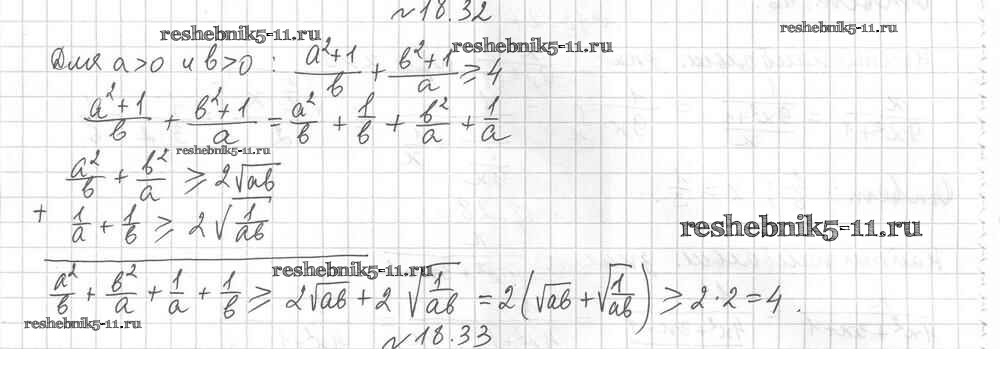 №18.32
reshebnik5-11.ru
reshebnik5-11.ru
reshebnik5-11.ru
Для a>0 и b>0 : (a²+1)/b + (b²+1)/a ≥ 4
(a²+1)/b + (b²+1)/a = a²/b + 1/b + b²/a + 1/a
reshebnik5-11.ru
a²/b + b²/a ≥ 2√ab
+ 1/a + 1/b ≥ 2√(1/ab)
reshebnik5-11.ru
reshebnik5-11.ru
a²/b + b²/a + 1/a + 1/b ≥ 2√ab + 2√(1/ab) = 2(√ab + √(1/ab)) ≥ 2·2=4.
reshebnik5-11.ru
№18.33